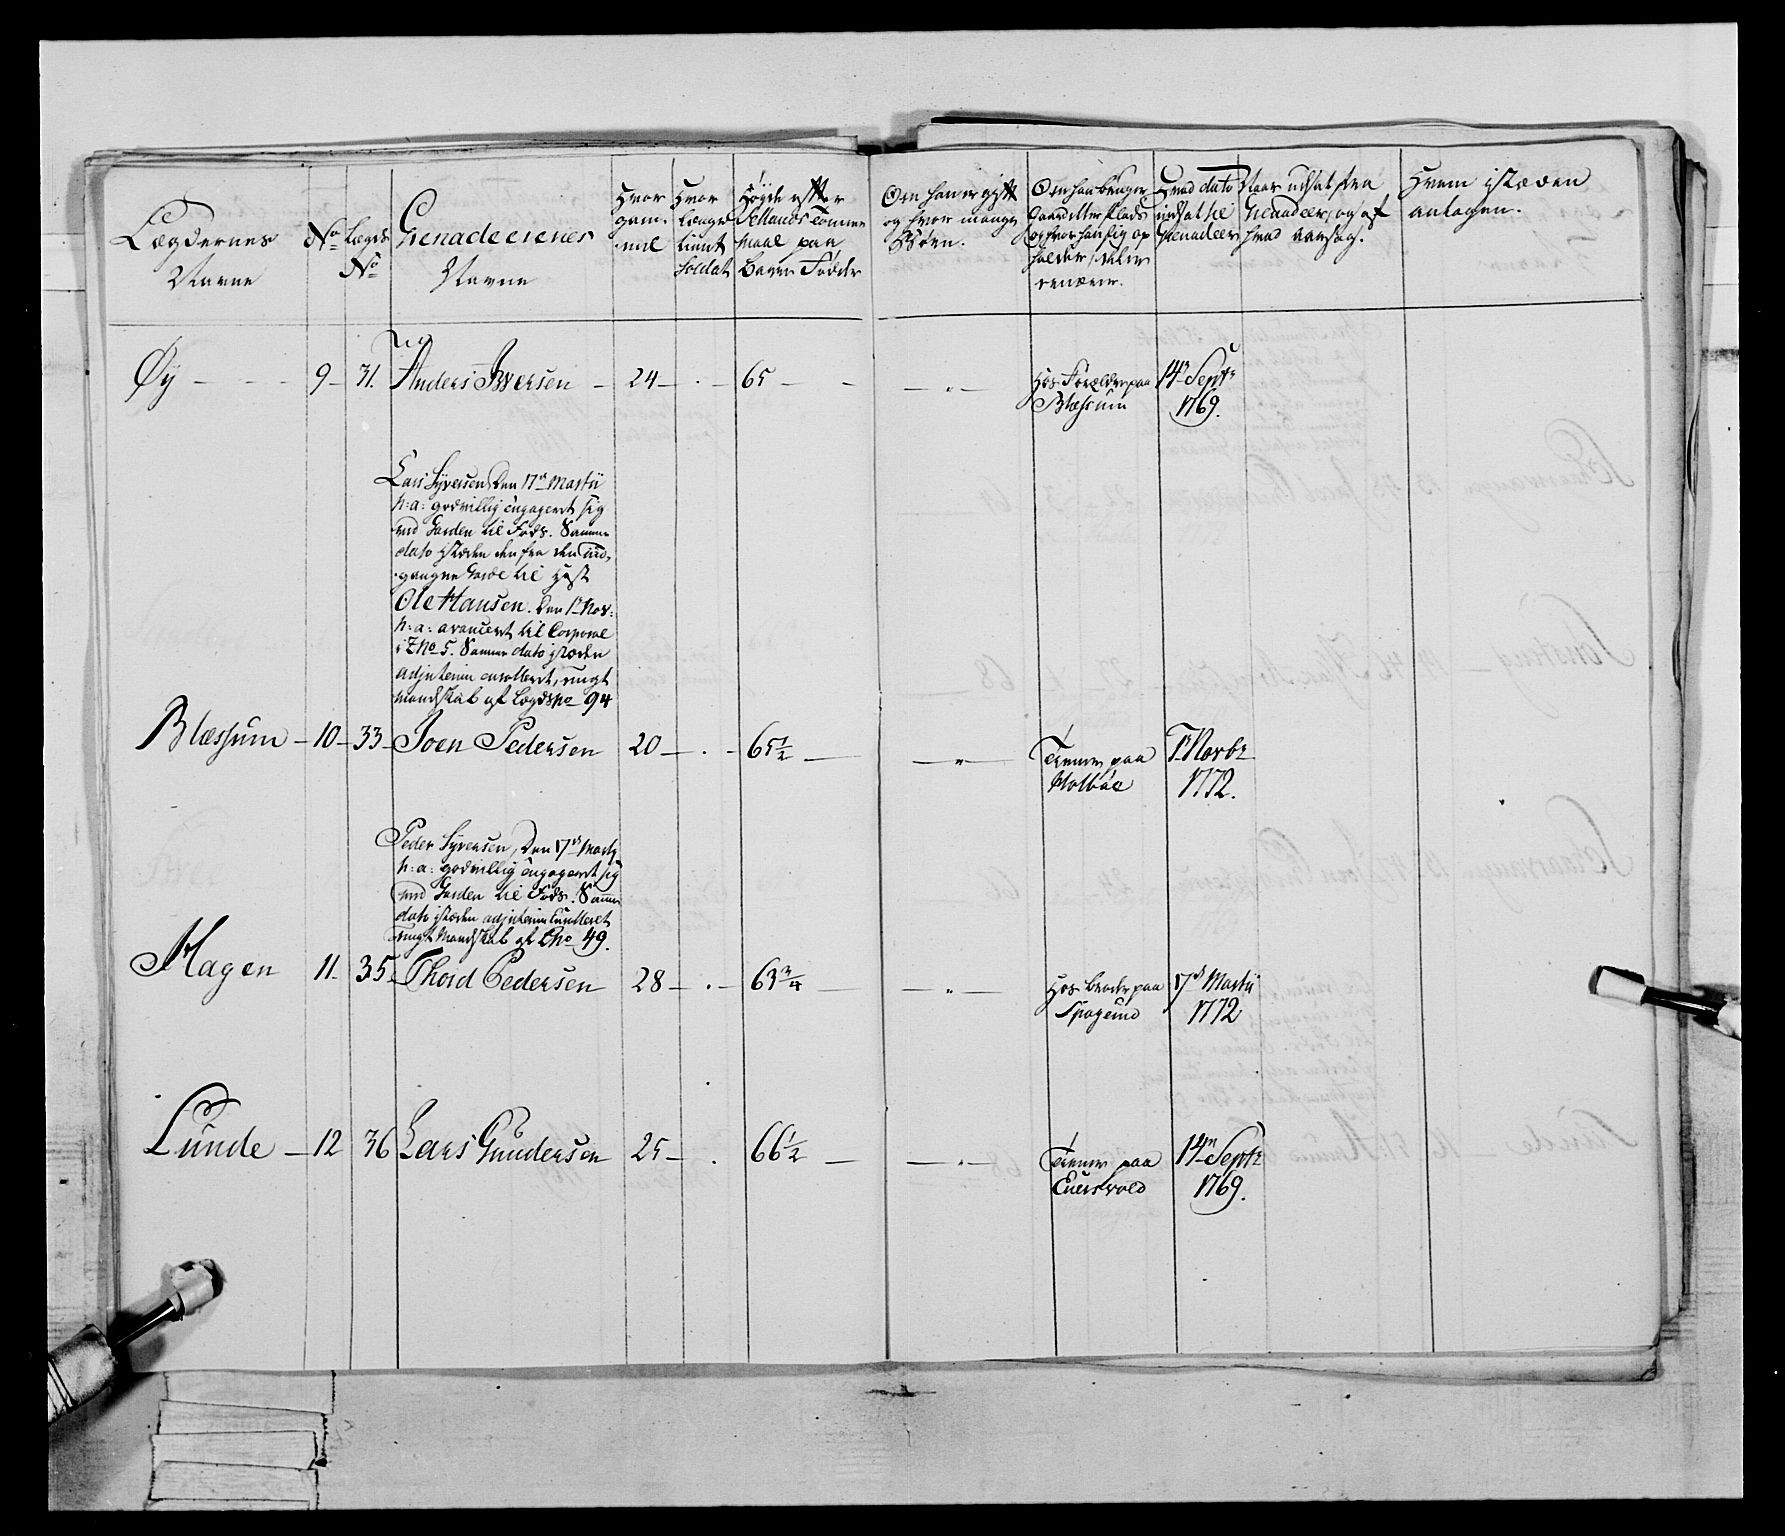 Lægdernes
Navne
No
Lægds
No
Grenadeerernes
Navne
Hvor
gam-
mel
Hvor
længe
tient
Soldat
Høyde efter
Sellands Tomme
Maal paa
bare Fødder
Om han er gift
og hvor mange
Børn.
Om han bruger
Gaard eller Plads
og hvor han sig op
holder, eller
tienner.
Hvad dato
indsat til
Grenadeer
Naar udsat fra
Grenadeer, og af
hvad aarsag.
Hvem i stæden
antagen.
Øy - - - 9 - 31. Anders Iversen - 24 - . - 65 - - - " - Hos Forældre paa 14de Septr
Blæssum 1769.
Lars Syversen, Den 17de Martii
h: a: godvillig engageret sig
ved Garden til Fods. Samme
dato i stæden den fra den
gangne Garde til Hest
Ole Hansen. Den 1te Nov:
h: a: avanceret til Corporal
i No 5. Samme dato i stæden
adjnterim enrolleret, ungt
mandskab af Lægds No 94
Blæssum - 10 - 33 - Joen Pedersen 20 - . - 65 1/2 - - " - Tienner paa 1te Novbr
1772.
Peder Syversen, Den 17de Martij
h: a: godvillig engageret sig
ved Garden til Fods. Samme
dato i stæden adjnterim Enrolleret
ungt Mandskab af No 49.
Hagen 11. 35 - Thord Pedersen 28 - . - 63 3/4 - - " - Hos broder paa 17de Martii
1772
Lunde - 12 36 Lars Gundersen 25 - . 66 1/2 - - " - Tienner paa 14de Septr
1769.